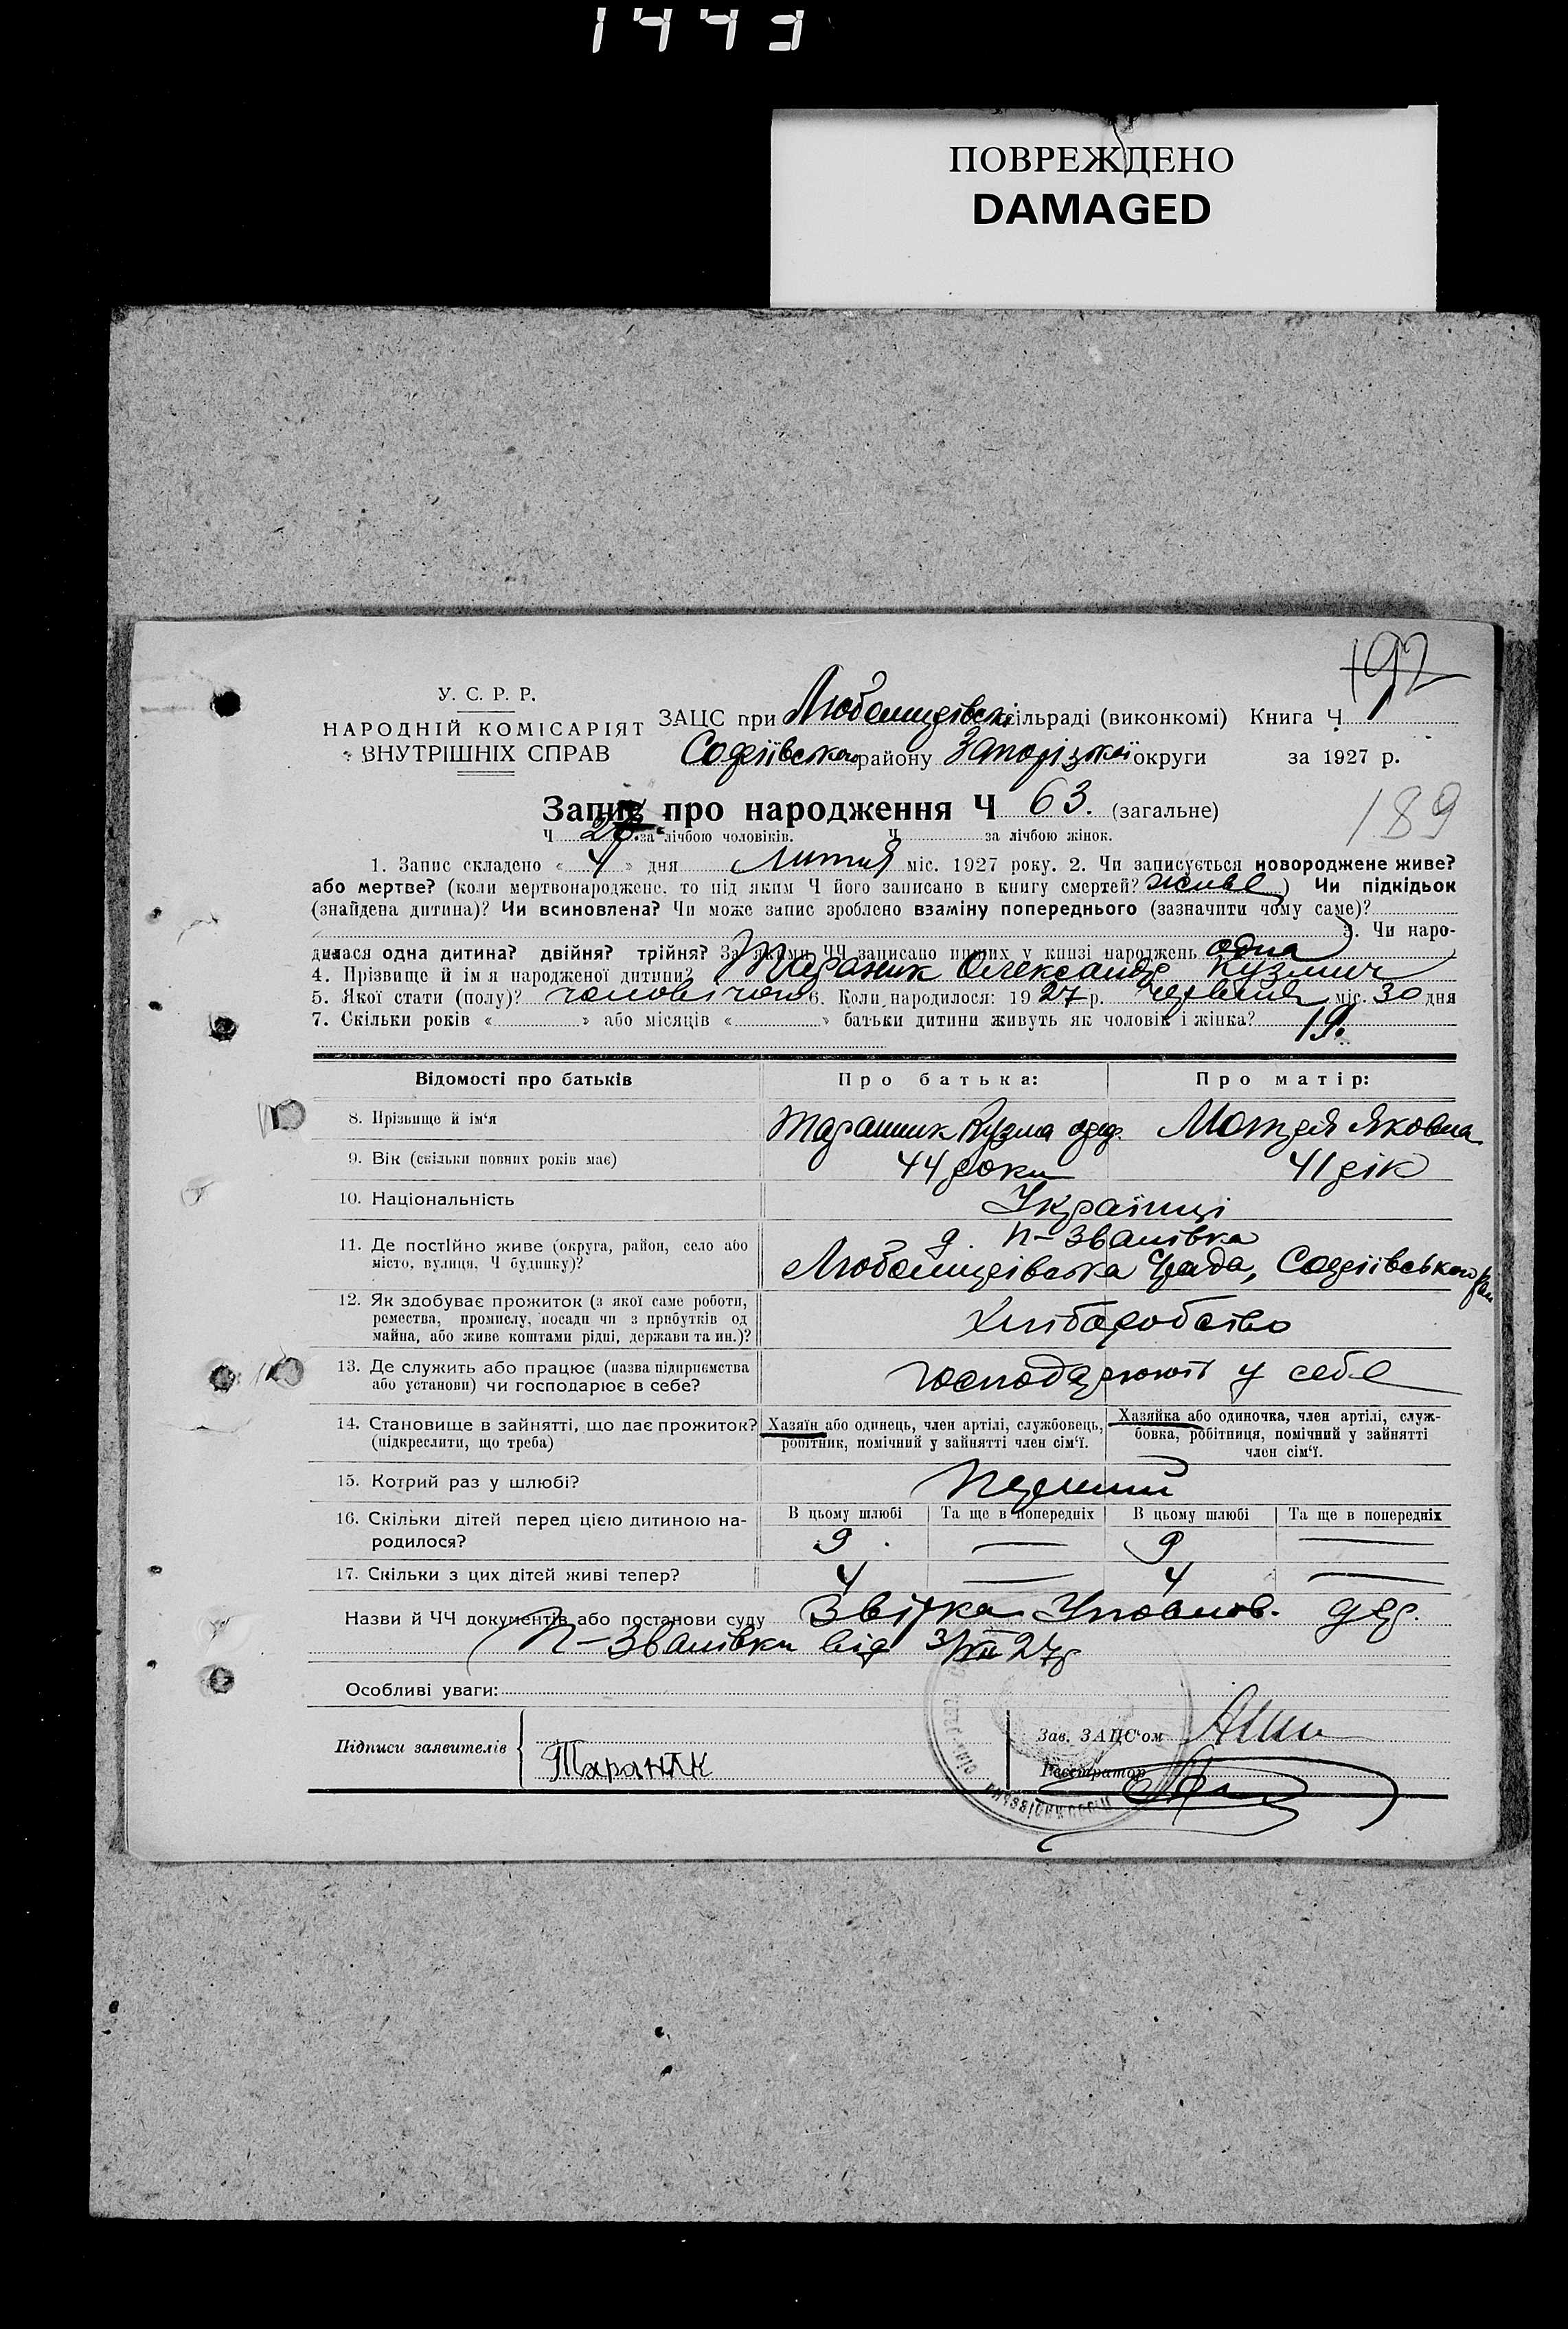 1443
ПОВРЕЖДЕНО
DAMAGED
192
У. С. Р. Р.
НАРОДНІЙ КОМІСАРІЯТ
ВНУТРІШНІХ СПРАВ
ЗАЦС при Любомирівські сільраді (виконкомі) Книга Ч
Софіївського району Запорізької округи за 1927 р.
Запис про народження Ч 63. (загальне)
189
Ч за лічбою чоловіків. Ч за лічбою жінок.
1. Запис складено « 4 » дня липня міс. 1927 року. 2. Чи записується новороджене живе?
або мертве? (коли мертвонароджене, то під яким Ч його записано в книгу смертей? живе ) Чи підкідьок
(знайдена дитина)? Чи всиновлена? Чи може запис зроблено взаміну попереднього (зазначити чому саме)?
3. Чи наро-
дилася одна дитина? двійня? трійня? За якими ЧЧ записано инших у книзі народжень одна
4. Прізвище й ім'я народженої дитини? Тараник Олександр Кузмич
5. Якої стати (полу)? чоловічого 6. Коли народилося: 19 27 р. червня міс. 30 дня
7. Скільки років « » або місяців « » батьки дитини живуть як чоловік і жінка? 19.
Відомості про батьків
Про батька:
Про матір:
8. Прізвище й ім'я
Тараник Кузма
Мотря Яковна
9. Вік (скільки повних років має)
44 роки
41 рік
10. Національність
Українці
11. Де постійно живе (округа, район, село або
місто, вулиця, Ч будинку)?
д. П-Званівка
Любомирівська Срада, Софіївського рай
12. Як здобуває прожиток (з якої саме роботи,
ремества, промислу, посади чи з прибутків од
майна, або живе коштами рідні, держави та ин.)?
Хліборобство
13. Де служить або працює (назва підприємства
або установи) чи господарює в себе?
господарюють у себе
14. Становище в зайнятті, що дає прожиток?
(підкреслити, що треба)
Хазяїн або одинець, член артілі, службовець,
робітник, помічний у зайнятті член сім'ї.
Хазяйка або одиночка, член артілі, служ-
бовка, робітниця, помічний у зайнятті
член сім'ї.
15. Котрий раз у шлюбі?
Перший
16. Скільки дітей перед цією дитиною на-
родилося?
В цьому шлюбі Та ще в попередніх В цьому шлюбі Та ще в попередніх
9 — 9 —
17. Скільки з цих дітей живі тепер?
4 — 4 —
Назви й ЧЧ документів або постанови суду Звірка Уповнов. дер.
П-Званівки від 3/VII 27р
Особливі уваги:
Підписи заявителів
Тараник
Зав. ЗАЦС'ом
Реєстратор